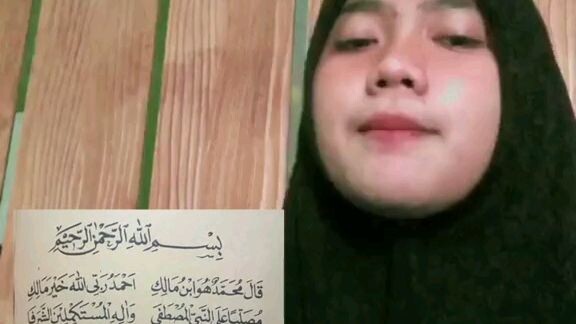 بِسْمِ اللهِ الرَّحْمٰنِ الرَّحِيْمِ
قَالَ مُحَمَّدٌ هُوَ ابْنُ مَالِكِ اَحْمَدُ رَبِّى اللهَ خَيْرَ مَالِكِ
مُصَلِّيًا عَلَى النَّبِىِّ الْمُصْطَفَى وَاٰلِهِ الْمُسْتَكْمِلِيْنَ الشَّرَفَا